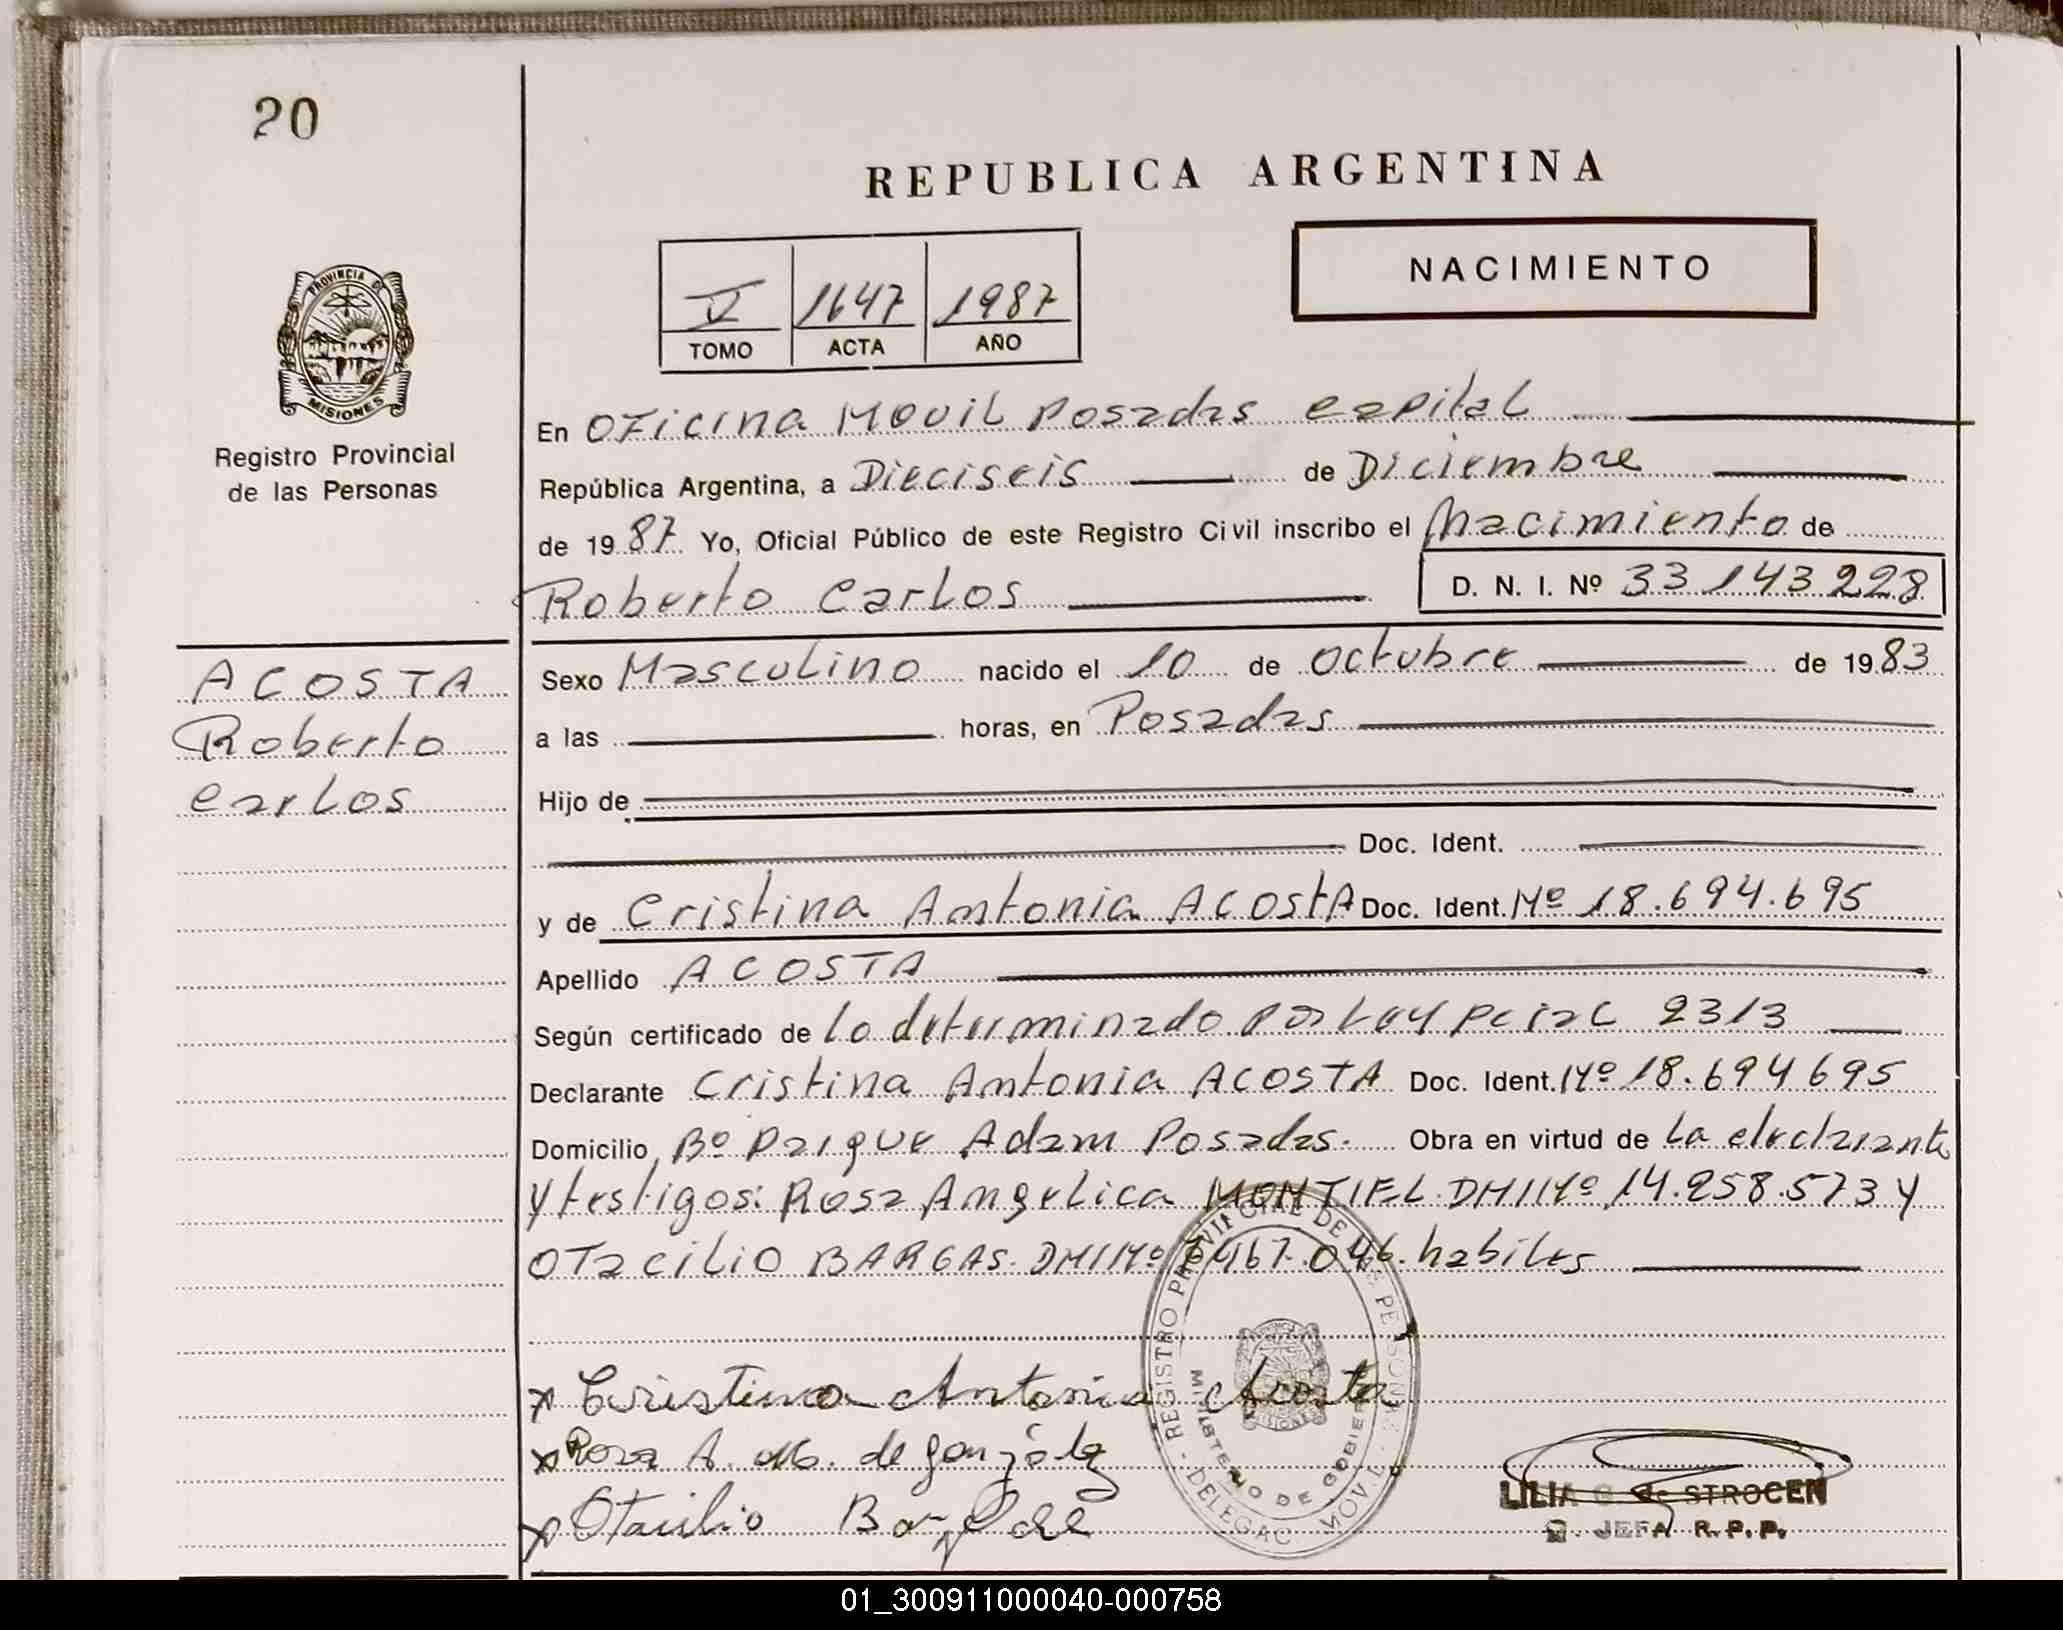 20
REPUBLICA ARGENTINA
NACIMIENTO
V 1647 1987
TOMO ACTA AÑO
PROVINCIA D MISIONES
Registro Provincial
de las Personas
En OFicina Movil Posadas capital
República Argentina, a Dieciseis de Diciembre
de 1987 Yo, Oficial Público de este Registro Civil inscribo el Nacimiento de
Roberto Carlos D. N. I. Nº 33143228
ACOSTA
Roberto
Carlos
Sexo Masculino nacido el 10 de octubre de 1983
a las horas, en Posadas
Hijo de
Doc. Ident.
y de Cristina Antonia ACOSTA Doc. Ident. Nº 18.694.695
Apellido ACOSTA
Según certificado de Lo determinado por Ley Pcial 2313
Declarante Cristina Antonia ACOSTA Doc. Ident. Nº 18.694695
Domicilio Bº Parque Adam Posadas. Obra en virtud de La declarante
y testigos: Rosa Angelica MONTIEL DNI Nº 14.258.573 y
OTacilio BARGAS. DNI Nº 467.046. habiles
REGISTRO PROVINCIAL DE LAS PERSONAS
MINISTERIO DE GOBIE
DELEGAC. MOVIL
x Cristina Antonia Acosta
x Rosa A. M. de
x Otacilio
LILIA G. de STROCEN
JEFA R.P.P.
01_300911000040-000758